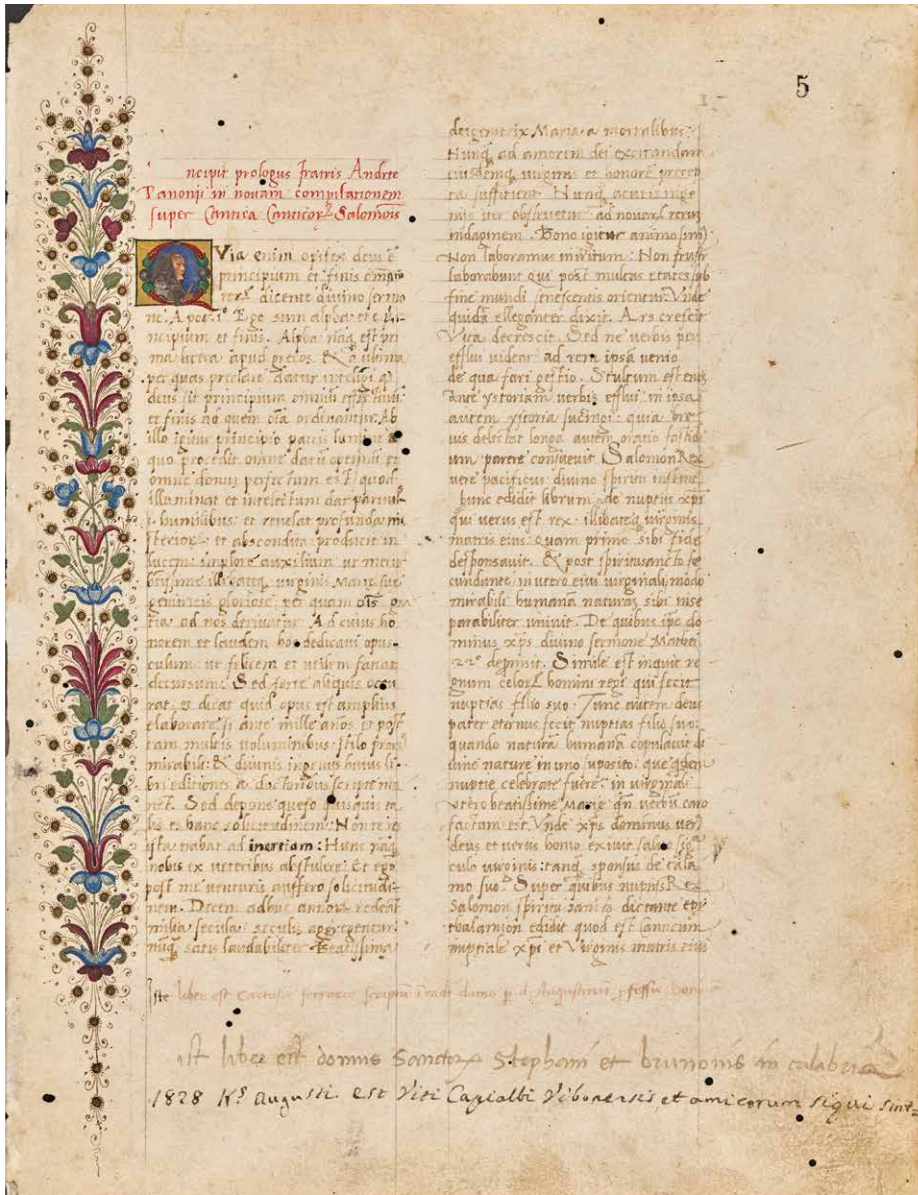 5
1
Incipit prologus fratris Andree
Panonii in novam compilationem
super Cantica Canticorꝝ Salomōis
Quia enim opifex deus ē
principium et finis omniū
rerꝝ dicente divino sermo
ne. Apoc. 1º Ego sum alpha et ω prī
ncipium et finis. Alpha nāq est pri
ma littera apud grecos. Et ω ultima
per quas preclare datur intelligi ꝙ
deus sit principium omniū effectivū
et finis ad quem oīa ordinantur. Ab
illo igitur principio patris luminū a
quo procedit omne datū optimū et
omne donū perfectum est quod
illuminat et intelectum dat parvul
humilibus et revelat profunda mi
sterioꝝ et abscondita producit in
lucem imploro auxilium ut merit
illibateqꝫ virginis Marie sue
genitricis gloriose per quam oīs gra
tia ad nos derivatur. Ad cuius ho
norem et laudem hoc dedicavi opus
culum ut felicem et utilem faciat
decursum. Sed forte aliquis occu
rat et dicat quid opus est amplius
elaborare si ante mille años et post
tam multis voluminibus stilo
mirabili et divinis ingeniis huius li
bri editiones a doctoribus scripte ma
nēt. Sed depone queso quisquis ta
lis es hanc solicitudinem. Non te
ista trahat ad inertiam: Hunc nāq
nobis ex veteribus abstulere. Et ego
post me venturis auffero solicitudi
nem. Decem adhuc annoꝝ redeāt
milia secula seculis aggregentur
nunqꝫ satis laudabiliter Beatissima
deigenitrix Maria a mortalibus.
Nunqꝫ ad amorem dei excitandam
eiusdemqꝫ virginis et honorē precep
ta sufficient. Nunqꝫ acutis inge
niis iter obstruetur ad novarꝝ reruꝫ
indaginem. Bono igitur animo simꝰ
Non laboramus inritum: Non frustr
laborabunt qui post multas etates sub
fine mundi senescentis orientur. Vnde
quidā elleganter dixit. Ars crescit
Vita decrescit. Sed ne verbis
efflui videar ad rem ipsa venio
de qua fari gestio. Stultum est enim
ante ystoriam verbis efflui in ipsa
autem ystoria sucingi: quia bre
vis delectat longa autem oratio fastidi
um parere consuevit. Salomon Rex
vere pacificus divino spiritu
hunc edidit librum de nuptiis xp̄i
qui verus est rex illibateqꝫ virginis
matris eius quam primo sibi fide
desponsavit. Et post spiritusancto fe
cundante in utero eius virginali modo
mirabili humanā naturaꝫ sibi inse
parabiliter univit. De quibus ipe do
minus xp̄s divino sermone Mathei
22º deprimit. Simile est inquit re
gnum celoꝝ homini regi qui fecit
nuptias filio suo. Tunc autem deus
pater eternus fecit nuptias filio suo:
quando naturā humanā copulavit di
vine nature in uno suposito que
nuptie celebrate fuere in virginali
utero beatissime Marie qn̄ verbū caro
factum est. Vnde xp̄s dominus verꝰ
deus et verus homo exivit salvo sig
culo virginis: tanqꝫ sponsus de tala
mo suo. Super quibus nuptiis Rex
Salomon spiritu sancto dictante epi
thalamion edidit quod est Canticum
nuptiale xp̄i et Virginis matris eius
Iste liber est Cartusie ferrarie scriptus in eadē domo p. d. Augustinū
ist liber est domus Sanctorꝝ Stephani et brunonis in calabria
1828 Kˢ Augusti est Viti Capialbi Vibonensis, et amicorum siqui sint=